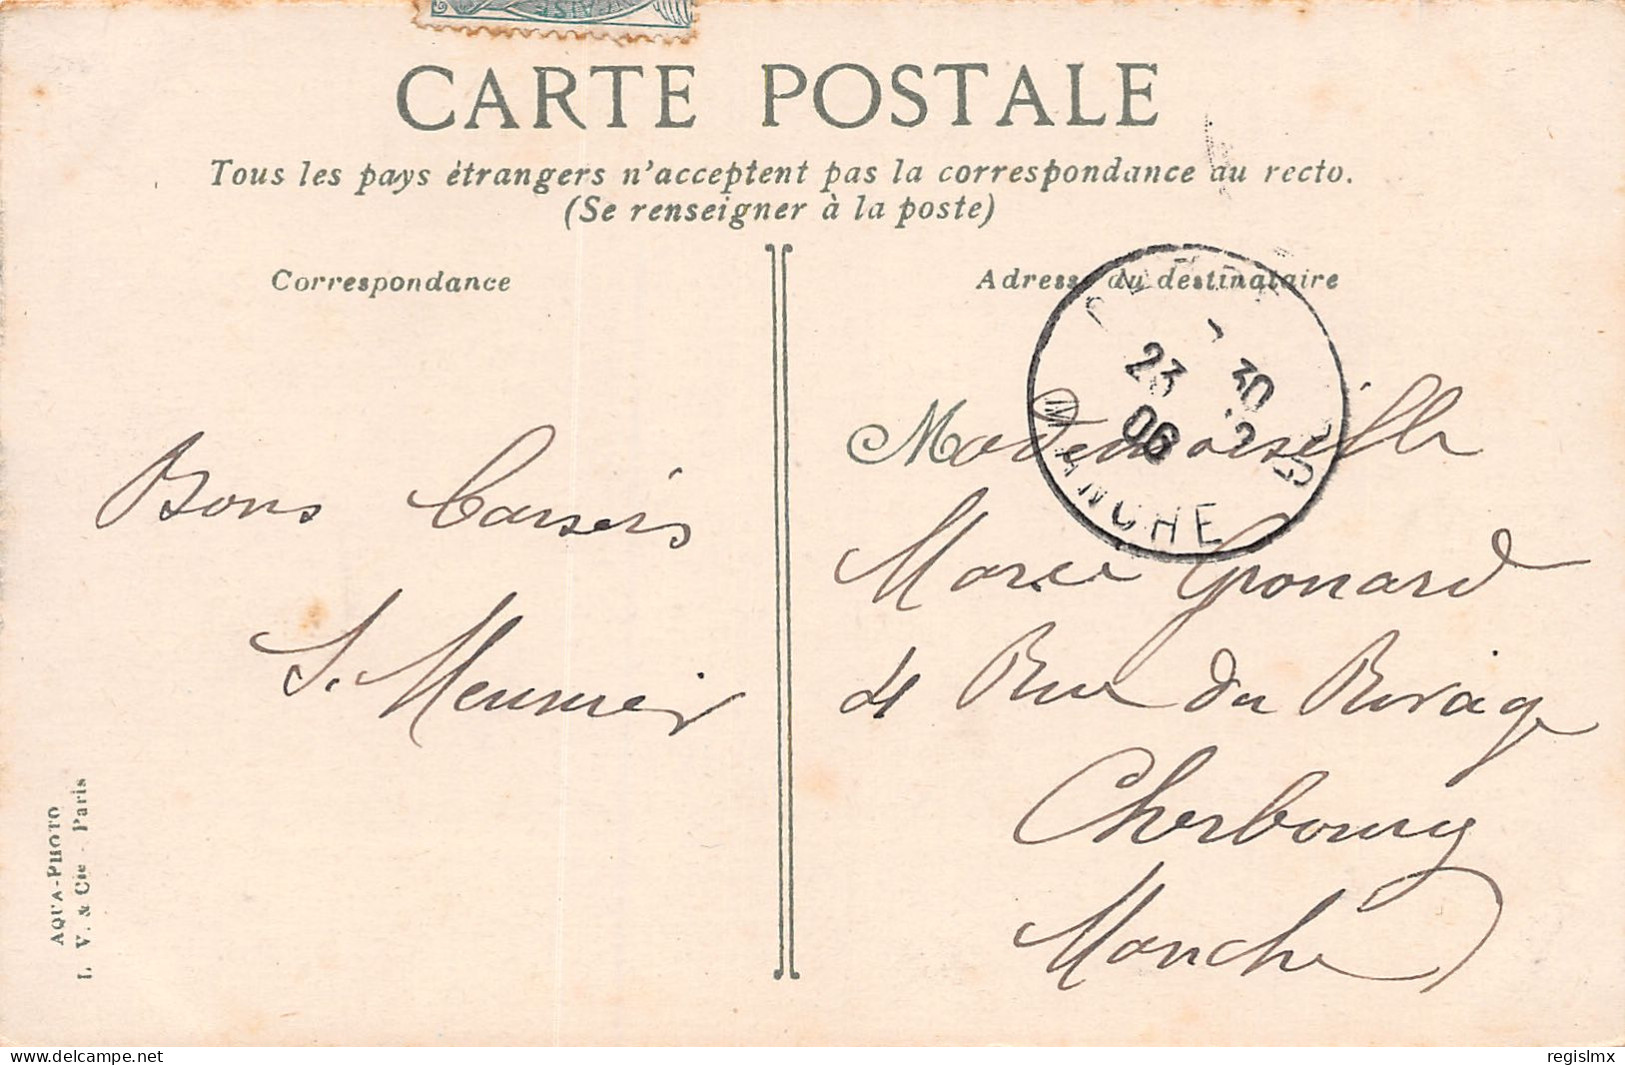 CARTE POSTALE
Tous les pays étrangers n'acceptent pas la correspondance au recto.
(Se renseigner à la poste)
Correspondance
Adresse du destinataire
7 30
23 2
06
MANCHE
Bons Baisers
S. Meunier
Mademoiselle
Marie Gronard
4 Rue du Rivage
Cherbourg
Manche
AQUA-PHOTO
L. V. & Cie - Paris
delcampe.net
regislmx